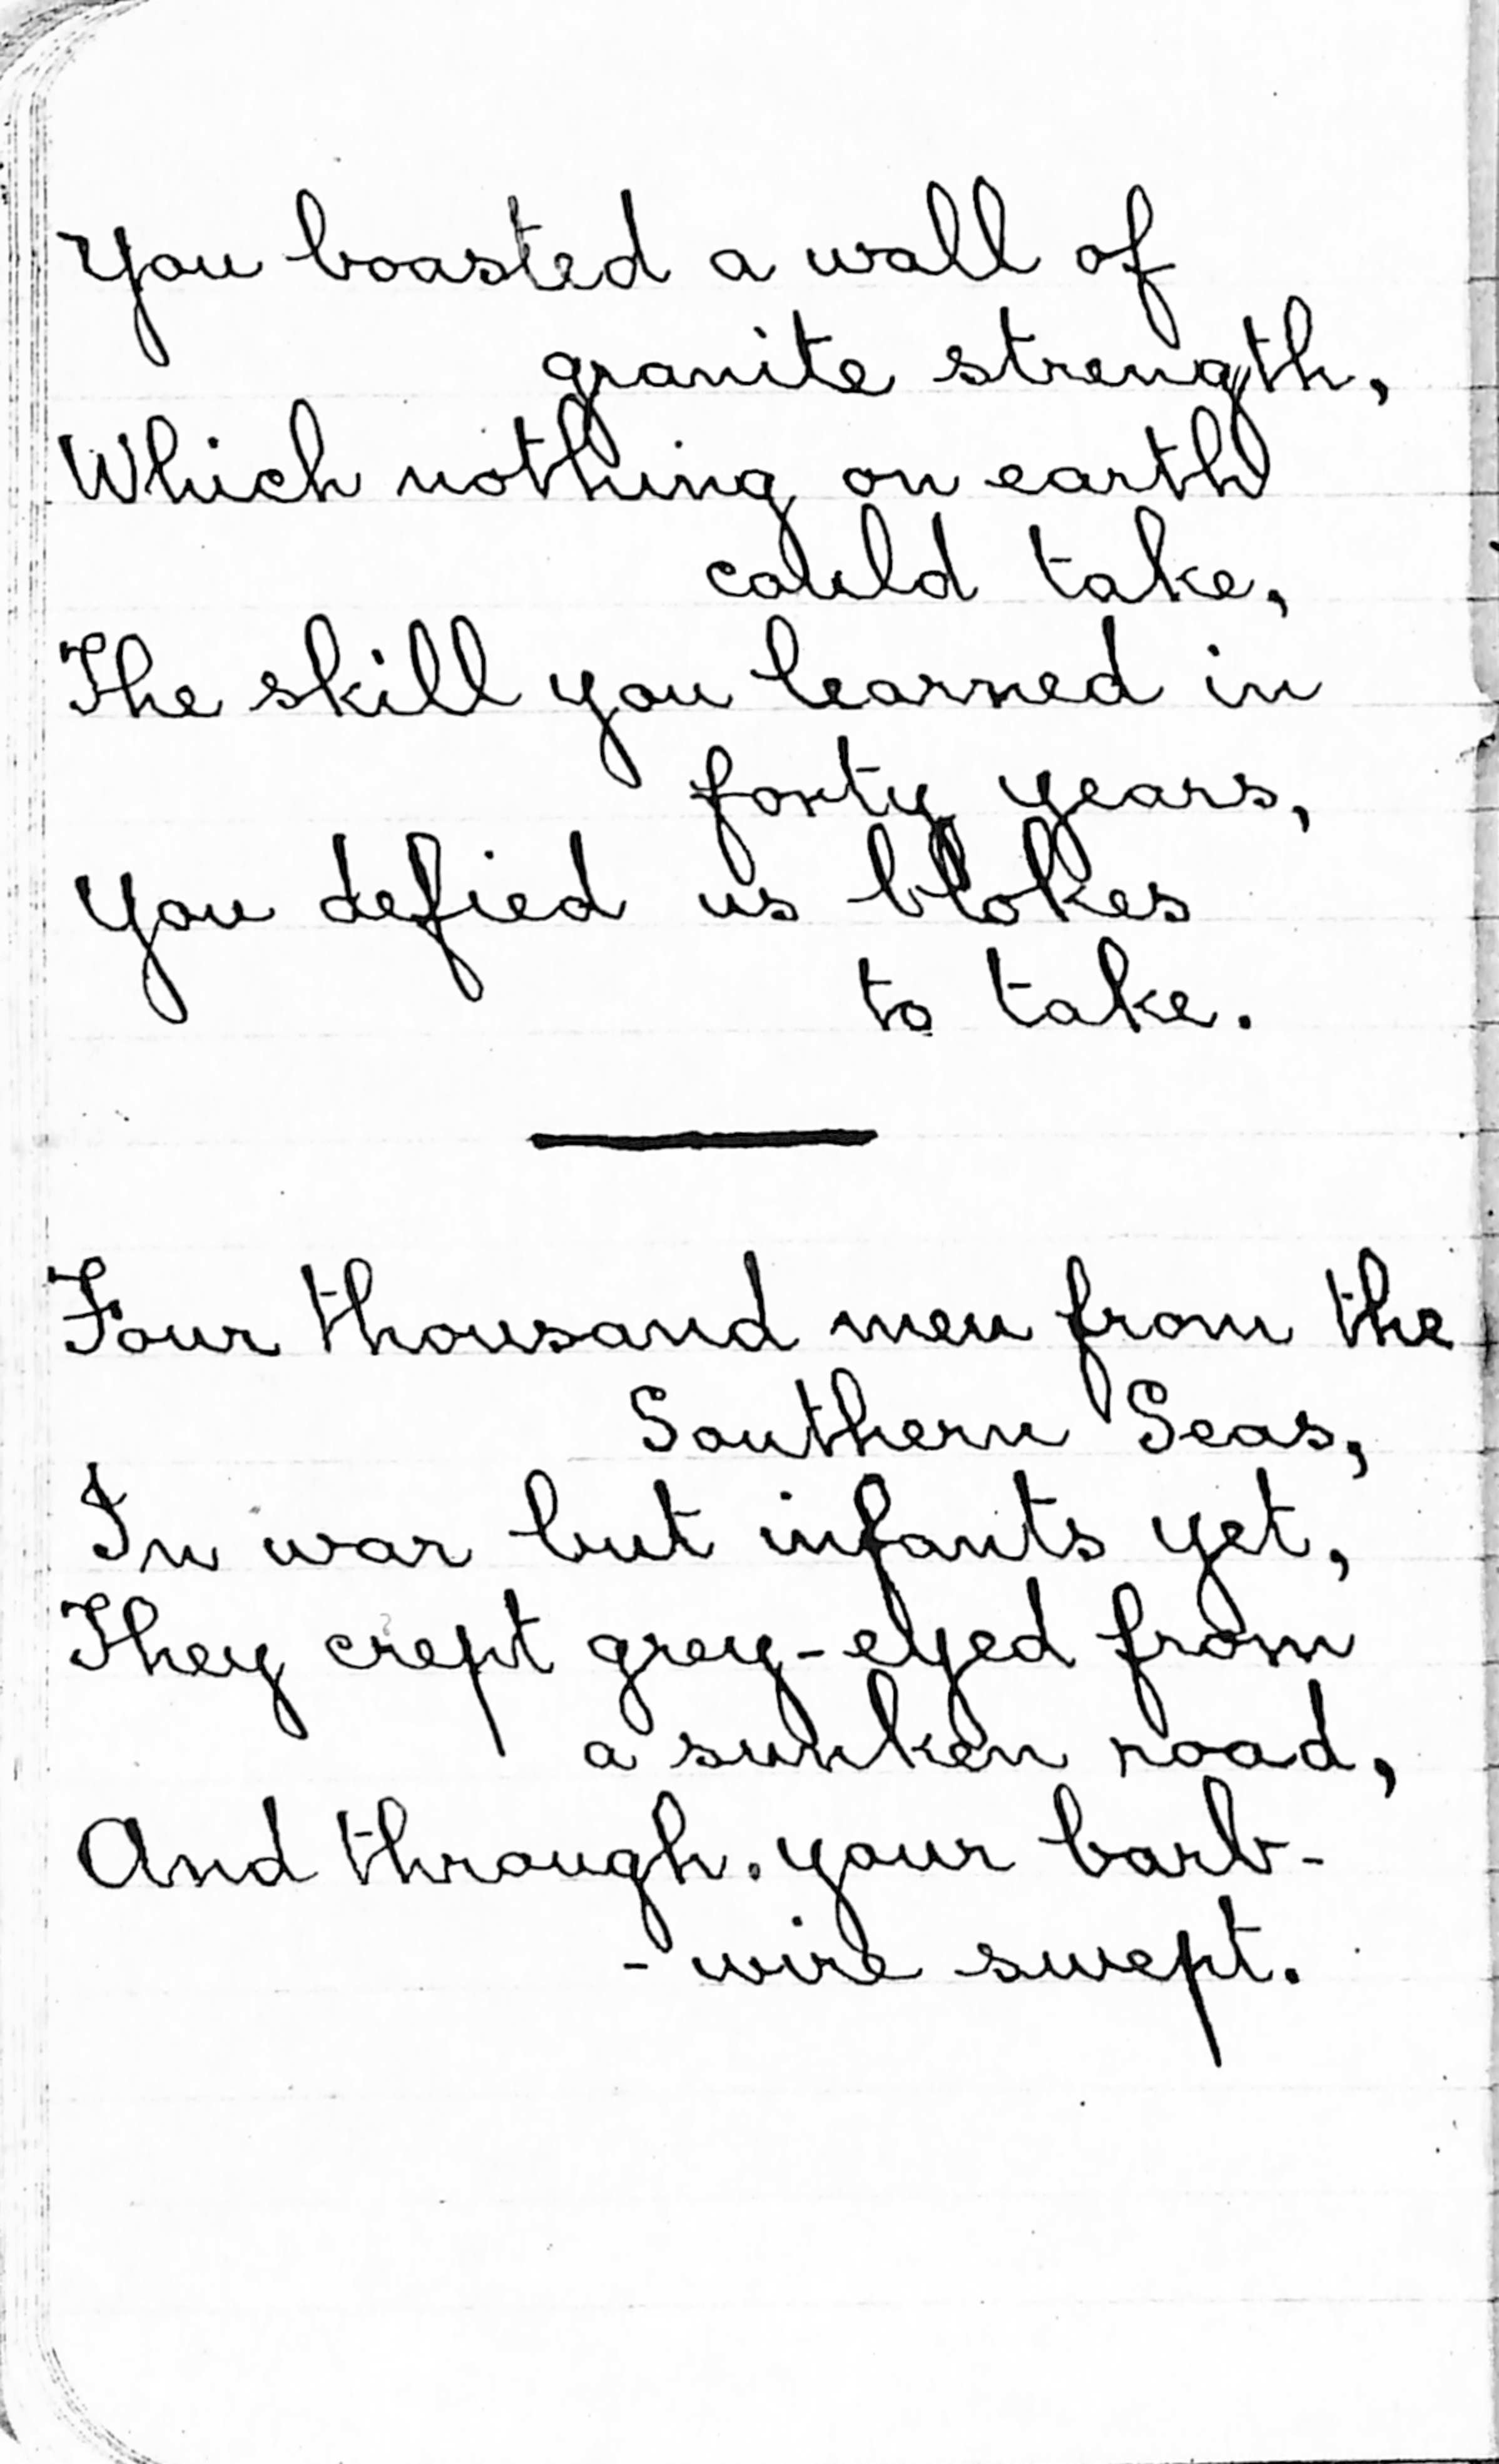 You boasted a wall of
granite strength,
Which nothing on earth
could take,
The skill you learned in
forty years,
You defied us blokes
to take.
Four thousand men from the
Southern Seas,
In war but infants yet,
They crept grey-eyed from
a sunken road,
And through. your barb-
- wire swept.